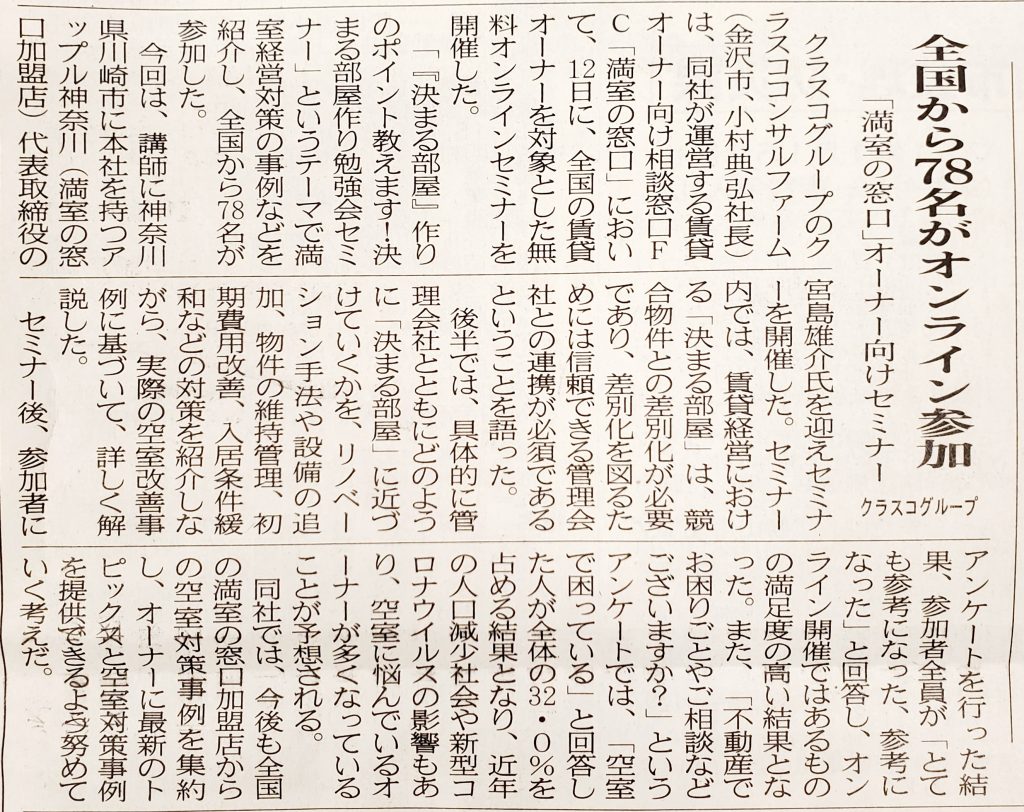 全国から78名がオンライン参加
「満室の窓口」オーナー向けセミナー
クラスコグループ
クラスコグループのク
ラスコンサルファーム
（金沢市、小村典弘社長）
は、同社が運営する賃貸
オーナー向け相談窓口F
C「満室の窓口」におい
て、12日に、全国の賃貸
オーナーを対象とした無
料オンラインセミナーを
開催した。
「『決まる部屋』作り
のポイント教えます！決
まる部屋作り勉強会セミ
ナー」というテーマで満
室経営対策の事例などを
紹介し、全国から78名が
参加した。
今回は、講師に神奈川
県川崎市に本社を持つア
ップル神奈川（満室の窓
口加盟店）代表取締役の
宮島雄介氏を迎えセミナ
ーを開催した。セミナー
内では、賃貸経営におけ
る「決まる部屋」は、競
合物件との差別化が必要
であり、差別化を図るた
めには信頼できる管理会
社との連携が必須である
ということを語った。
後半では、具体的に管
理会社とともにどのよう
に「決まる部屋」に近づ
けていくかを、リノベー
ション手法や設備の追
加、物件の維持管理、初
期費用改善、入居条件緩
和などの対策を紹介しな
がら、実際の空室改善事
例に基づいて、詳しく解
説した。
セミナー後、参加者に
アンケートを行った結
果、参加者全員が「とて
も参考になった、参考に
なった」と回答し、オン
ライン開催ではあるもの
の満足度の高い結果とな
った。また、「不動産で
お困りごとやご相談など
ございますか？」という
アンケートでは、「空室
で困っている」と回答し
た人が全体の32・0％を
占める結果となり、近年
の人口減少社会や新型コ
ロナウイルスの影響もあ
り、空室に悩んでいるオ
ーナーが多くなっている
ことが予想される。
同社では、今後も全国
の満室の窓口加盟店から
の空室対策事例を集約
し、オーナーに最新のト
ピックスと空室対策事例
を提供できるよう努めて
いく考えだ。